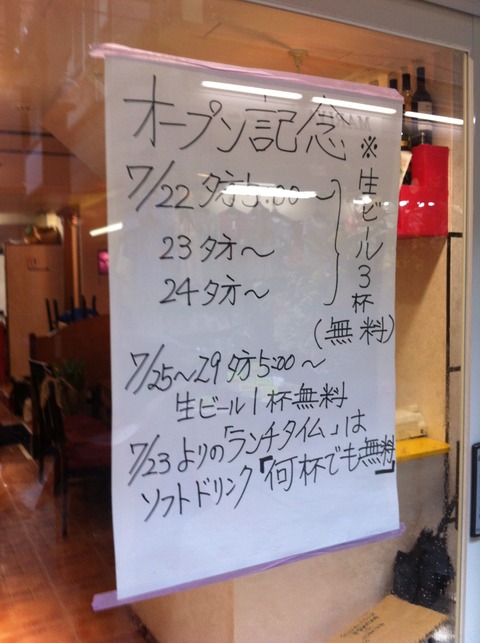 オープン記念
7/22 夕方5:00〜
23 夕方〜
24 夕方〜
※生ビール3杯
(無料)
7/25〜29 夕方5:00〜
生ビール1杯無料
7/23よりの「ランチタイム」は
ソフトドリンク「何杯でも無料」